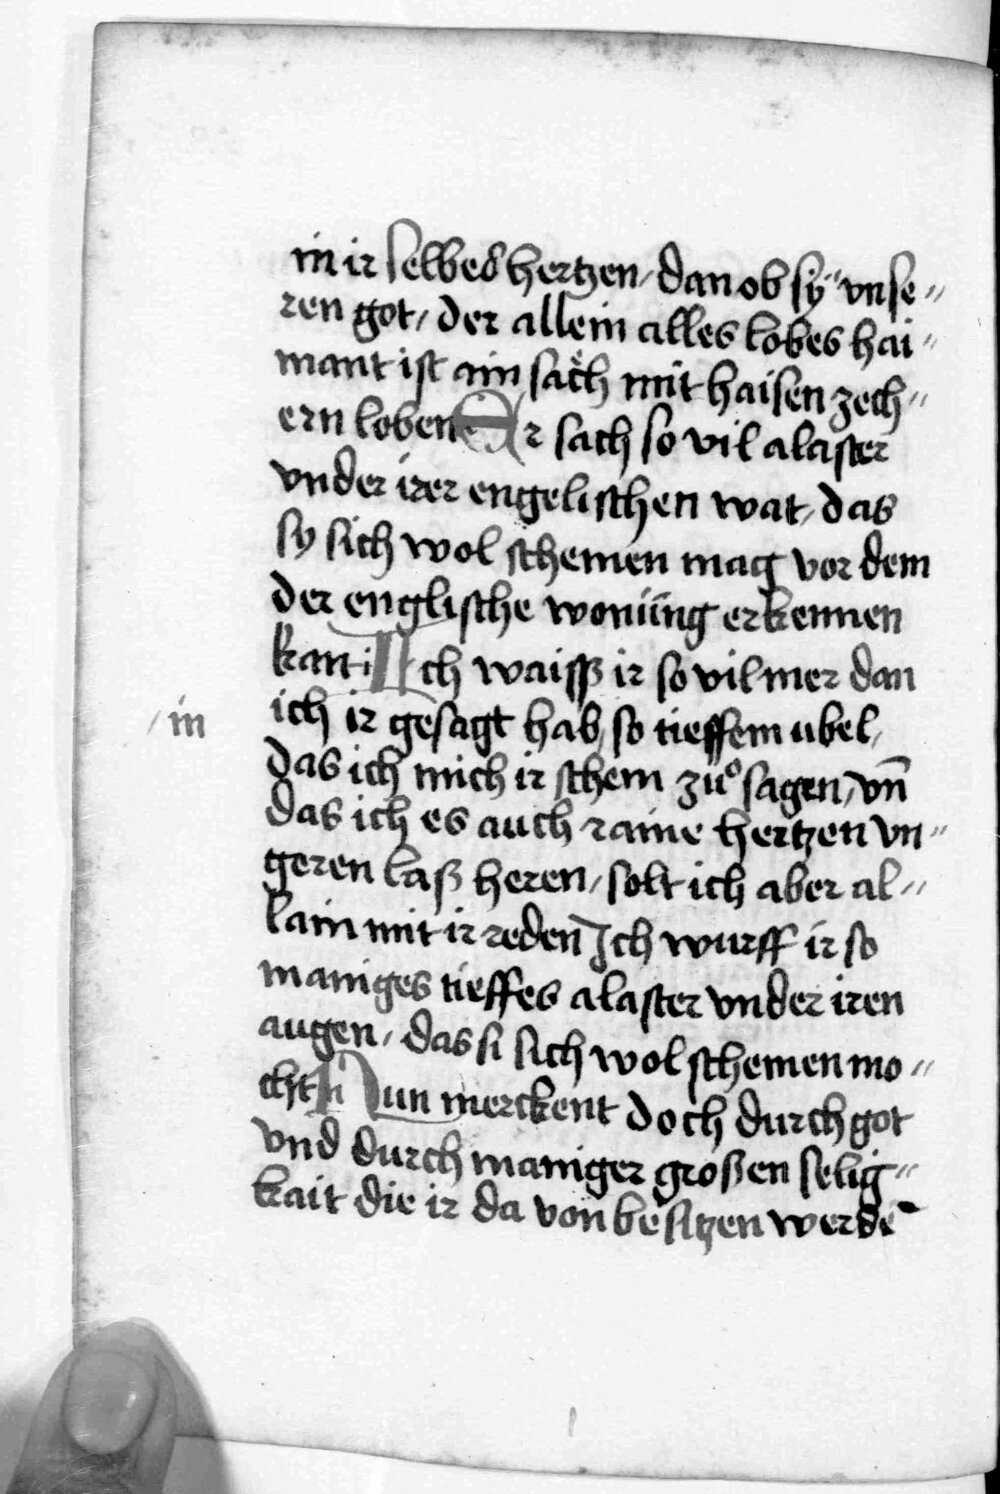 in ir selbes hertzen / dan ob sÿ vnse〃
ren got / der allein alles lobes hai〃
mant ist ain sach mit haisen zech〃
ern loben Er sach so vil alaster
vnder irer engelischen wat / das
sy sich wol schemen mag vor dem
der englische wonüng erkennen
kan Ich waisß ir so vil mer dan
/ in
ich ir gesagt hab / so tieffem ubel /
das ich mich ir schem zuͦ sagen / vn̄
das ich es auch raine hertzen vn〃
geren laß heren / solt ich aber al〃
lain mit ir reden Ich wurff ir so
maniges tieffes alaster vnder iren
augen / das si sich wol schemen mo〃
cht Nun merckent doch durch got
vnd durch maniger großen selig〃
kait die ir da von besitzen werdē